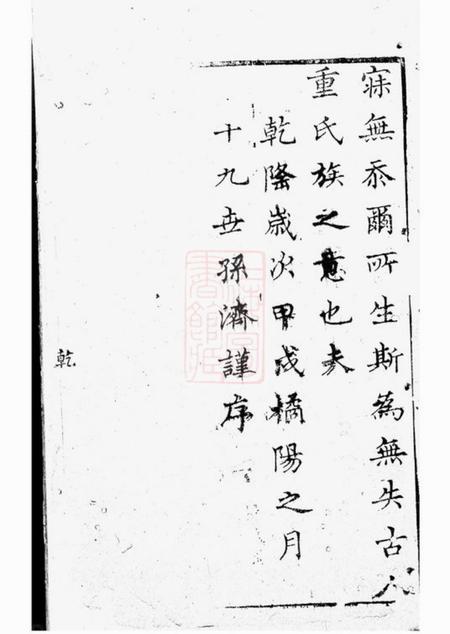 寐無忝爾所生斯為無失古人
重氏族之意也夫
乾隆歲次甲戌橘陽之月
十九世孫濟謹序
乾